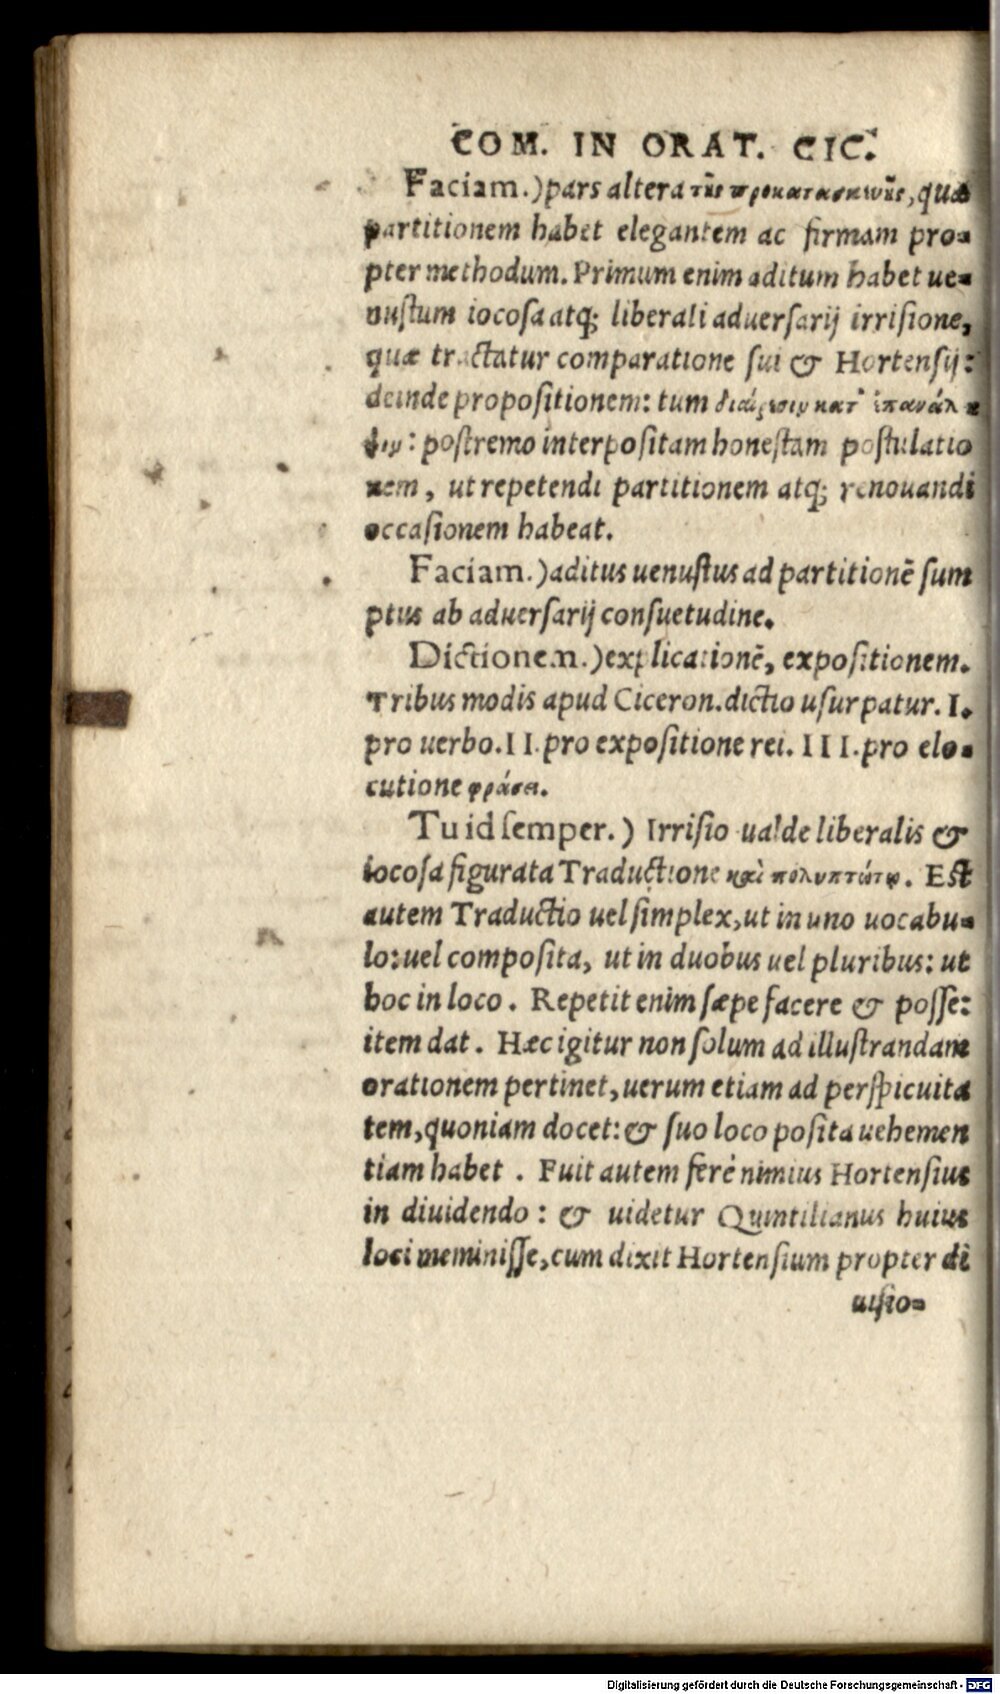 COM. IN ORAT. CIC.
Faciam.) pars altera τῆς προκατασκευῆς, quæ
partitionem habet elegantem ac firmam pro=
pter methodum. Primum enim aditum habet ue=
nustum iocosa atq; liberali aduersarij irrisione,
quæ tractatur comparatione sui & Hortensij:
deinde propositionem: tum διαίρεσιν κατ' ἐπανάλη
ψιν: postremo interpositam honestam postulatio
nem, ut repetendi partitionem atq; renouandi
occasionem habeat.
Faciam.) aditus uenustus ad partitionē sum
ptus ab aduersarij consuetudine.
Dictionem.) explicationē, expositionem.
Tribus modis apud Ciceron. dictio usurpatur. I.
pro uerbo. II. pro expositione rei. III. pro elo=
cutione φράσει.
Tu id semper.) Irrisio ualde liberalis &
iocosa figurata Traductione καὶ πολυπτώτῳ. Est
autem Traductio uel simplex, ut in uno uocabu=
lo: uel composita, ut in duobus uel pluribus: ut
hoc in loco. Repetit enim sæpe facere & posse:
item dat. Hæc igitur non solum ad illustrandam
orationem pertinet, uerum etiam ad perspicuita
tem, quoniam docet: & suo loco posita uehemen
tiam habet. Fuit autem ferè nimius Hortensius
in diuidendo: & uidetur Quintilianus huius
loci meminisse, cum dixit Hortensium propter di
uisio=
Digitalisierung gefördert durch die Deutsche Forschungsgemeinschaft - DFG